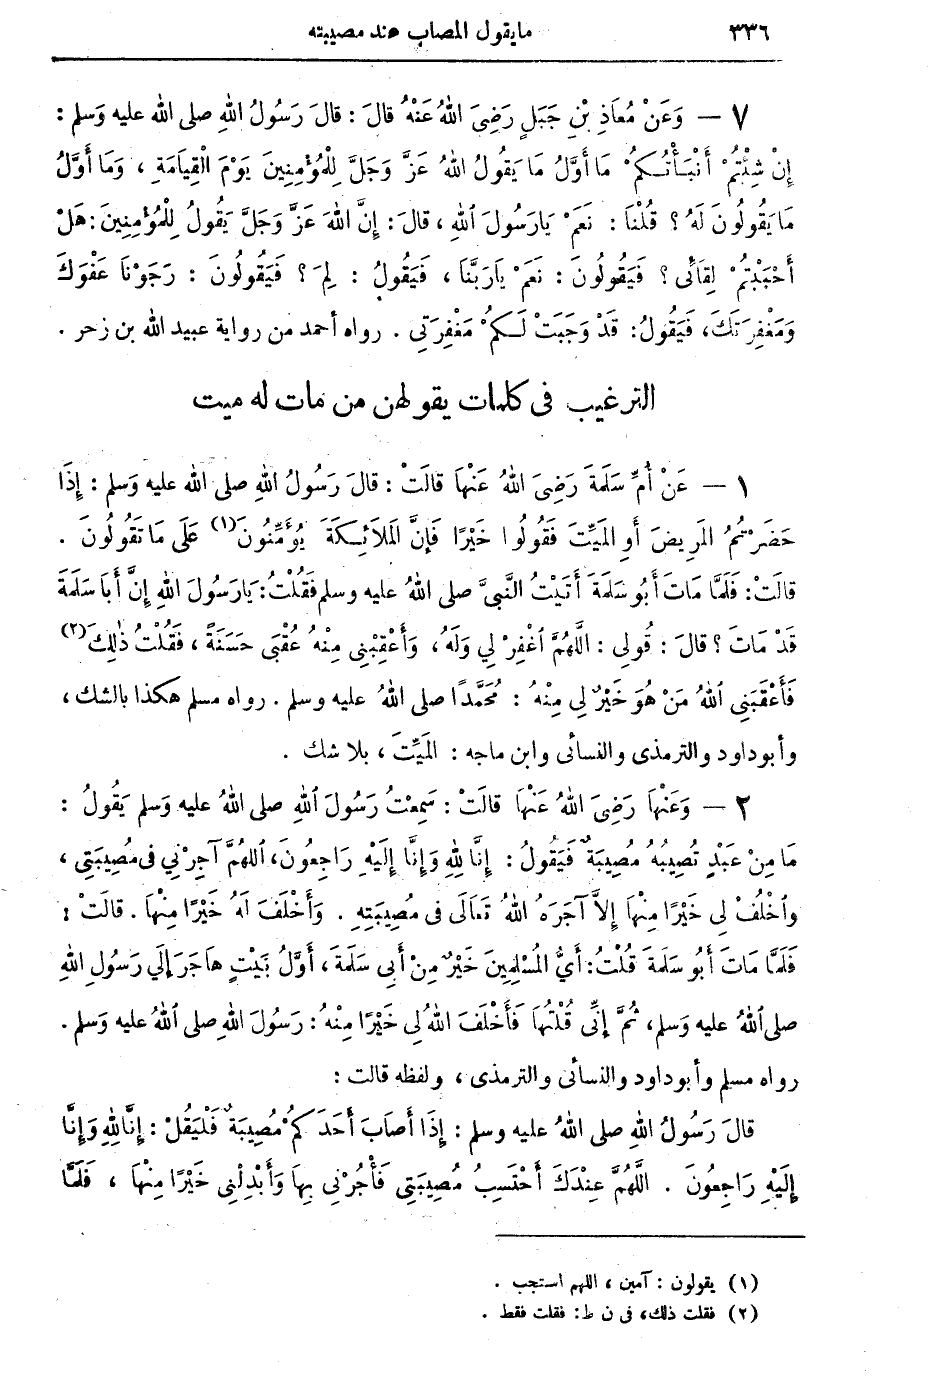 ٣٣٦ مايقول المصاب عند مصيبته
٧ — وَعَنْ مُعَاذِ بْنِ جَبَلٍ رَضِىَ اللهُ عَنْهُ قالَ : قالَ رَسُولُ اللهِ صلى الله عليه وَسلم :
إِنْ شِئْتُمْ أَنْبَأْتُكُمْ مَا أَوَّلُ مَا يَقُولُ اللهُ عَزَّ وَجَلَّ لِلْمُؤْمِنِينَ يَوْمَ الْقِيَامَةِ ، وَمَا أَوَّلُ
مَا يَقُولُونَ لَهُ ؟ قُلْنَا : نَعَمْ يَارَسُولَ اللهِ ، قالَ : إِنَّ اللهَ عَزَّ وَجَلَّ يَقُولُ لِلْمُؤْمِنِينَ : هَلْ
أَحْبَبْتُمْ لِقَائَى ؟ فَيَقُولُونَ : نَعَمْ يَارَبَّنَا ، فَيَقُولُ : لِمَ ؟ فَيَقُولُونَ : رَجَوْنَا عَفْوَكَ
وَمَغْفِرَتَكَ، فَيَقُولُ : قَدْ وَجَبَتْ لَكُمْ مَغْفِرَتِى . رواه أحمد من رواية عبيد الله بن زحر .
الترغيب فى كلمات يقولهن من مات له ميت
١ — عَنْ أُمِّ سَلَمَةَ رَضِىَ اللهُ عَنْهَا قالَتْ : قالَ رَسُولُ اللهِ صلى الله عليه وَسلم : إِذَا
حَضَرْتُمُ المَرِيضَ أَوِ المَيِّتَ فَقُولُوا خَيْرًا فَإِنَّ المَلَائِكَةَ يُؤَمِّنُونَ(١) عَلَى مَا تَقُولُونَ .
قالَتْ : فَلَمَّا مَاتَ أَبُو سَلَمَةَ أَتَيْتُ النَّبِىَّ صلى اللهُ عليه وسلم فَقُلْتُ : يَارَسُولَ اللهِ إِنَّ أَبَا سَلَمَةَ
قَدْ مَاتَ ؟ قالَ : قُولِى : اللَّهُمَّ اغْفِرْ لِي وَلَهُ ، وَأَعْقِبْنِى مِنْهُ عُقْبَى حَسَنَةً ، فَقُلْتُ ذٰلِكَ(٢)
فَأَعْقَبَنِى اللهُ مَنْ هُوَ خَيْرٌ لِي مِنْهُ : مُحَمَّدًا صلى اللهُ عليه وسلم . رواه مسلم هكذا بالشك ،
وأبوداود والترمذى والنسائى وابن ماجه : المَيِّتَ ، بلا شك .
٢ — وَعَنْهَا رَضِىَ اللهُ عَنْهَا قالَتْ : سَمِعْتُ رَسُولَ اللهِ صلى اللهُ عليه وسلم يَقُولُ :
مَا مِنْ عَبْدٍ تُصِيبُهُ مُصِيبَةٌ فَيَقُولُ : إِنَّا لِلهِ وَإِنَّا إِلَيْهِ رَاجِعُونَ، اللهُمَّ آجِرْنِي فى مُصِيبَتِى ،
واخْلُفْ لِى خَيْرًا مِنْهَا إِلاَّ آجَرَهُ اللهُ تَعَالَى فى مُصِيبَتِهِ . وَأَخْلَفَ لَهُ خَيْرًا مِنْهَا . قالَتْ :
فَلَمَّا مَاتَ أَبُو سَلَمَةَ قُلْتُ : أَيُّ المُسْلِمِينَ خَيْرٌ مِنْ أَبِى سَلَمَةَ ، أَوَّلُ بَيْتٍ هاجَرَ إِلَي رَسُولِ اللهِ
صلى اللهُ عليه وَسلم، ثُمَّ إِنِّى قُلْتُهَا فَأَخْلَفَ اللهُ لِى خَيْرًا مِنْهُ : رَسُولَ اللهِ صلى اللهُ عليه وَسلم .
رواه مسلم وأبوداود والنسائى والترمذى ، ولفظه قالت :
قالَ رَسُولُ اللهِ صلى اللهُ عليه وسلم : إِذَا أَصَابَ أَحَدَكُمْ مُصِيبَةٌ فَلْيَقُلْ : إِنَّا لِلهِ وَإِنَّا
إِلَيْهِ رَاجِعُونَ . اللَّهُمَّ عِنْدَكَ أَحْتَسِبُ مُصِيبَتِى فَأْجُرْنِى بِهَا وَأَبْدِلْنِى خَيْرًا مِنْهَا ، فَلَمَّا
(١) يقولون : آمين ، اللهم استجب .
(٢) فقلت ذلك، فى ن ط : فقلت فقط .